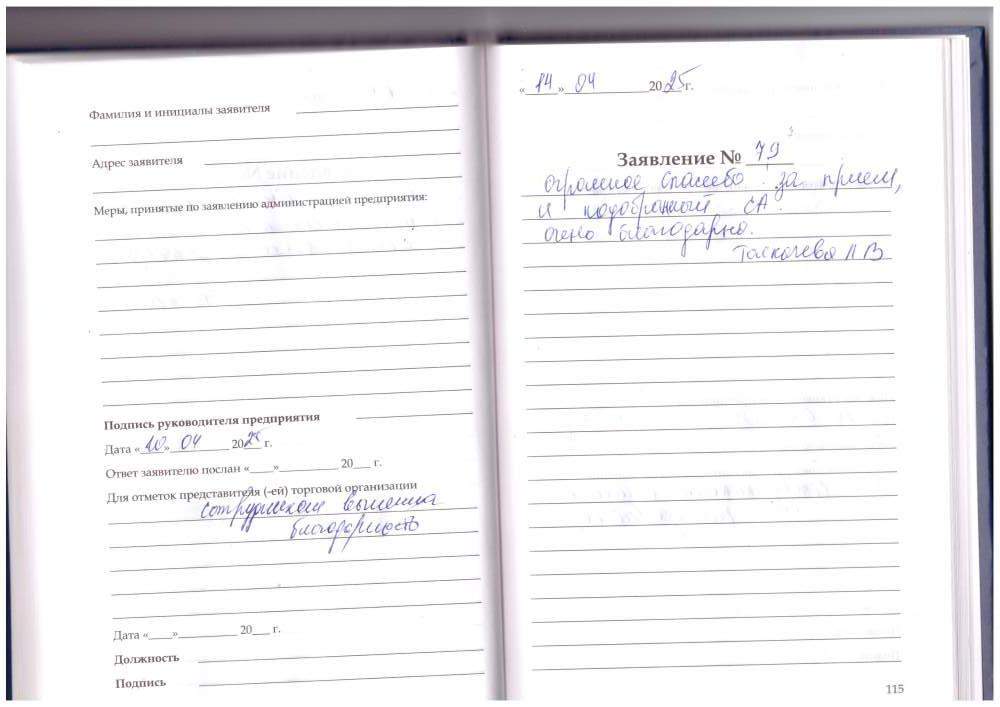 Фамилия и инициалы заявителя
Адрес заявителя
Меры, принятые по заявлению администрацией предприятия:
Подпись руководителя предприятия
Дата «10» 04 2025 г.
Ответ заявителю послан «____»__________ 20___ г.
Для отметок представителя (-ей) торговой организации
сотрудникам вынесена
благодарность
Дата «____»__________ 20___ г.
Должность
Подпись
«14» 04 2025 г.
Заявление № 79
огромное спасибо за прием,
и подобранный СА.
очено благодарно.
Л В
115